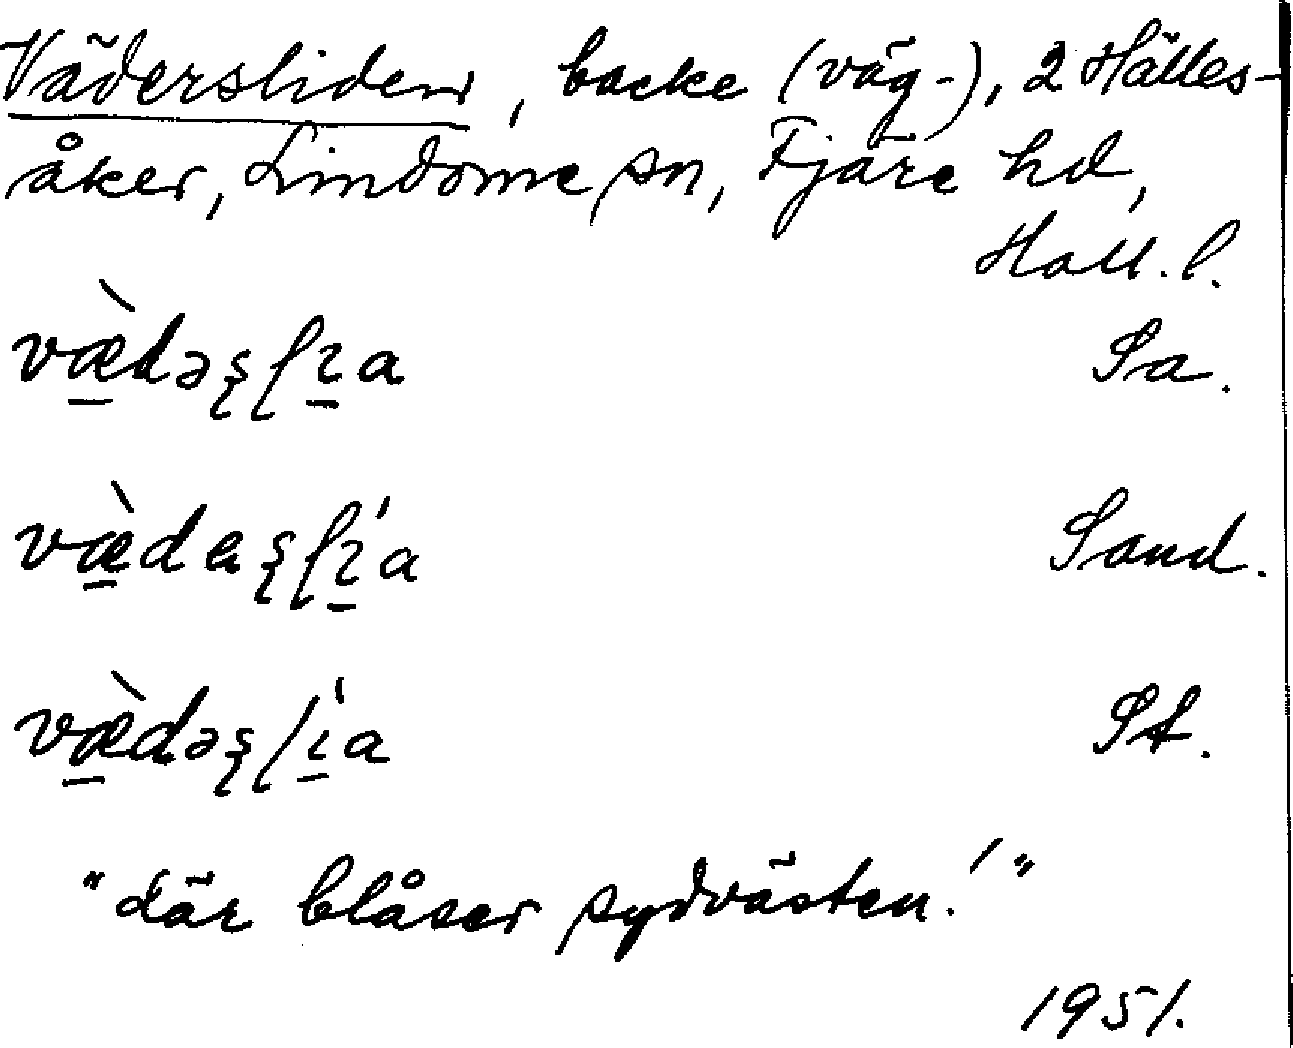 Vädersliden, backe (väg-), 2 Hälles-
åker, Lindome sn, Fjäre hd,
Hall. l.
væ̱̀dəʂʃɪ̱a Sa.
væ̱̀deʂʃɪ̱́a Sand.
væ̱̀dəʂlí̱a St.
"där blåser sydvästen!"
1951.